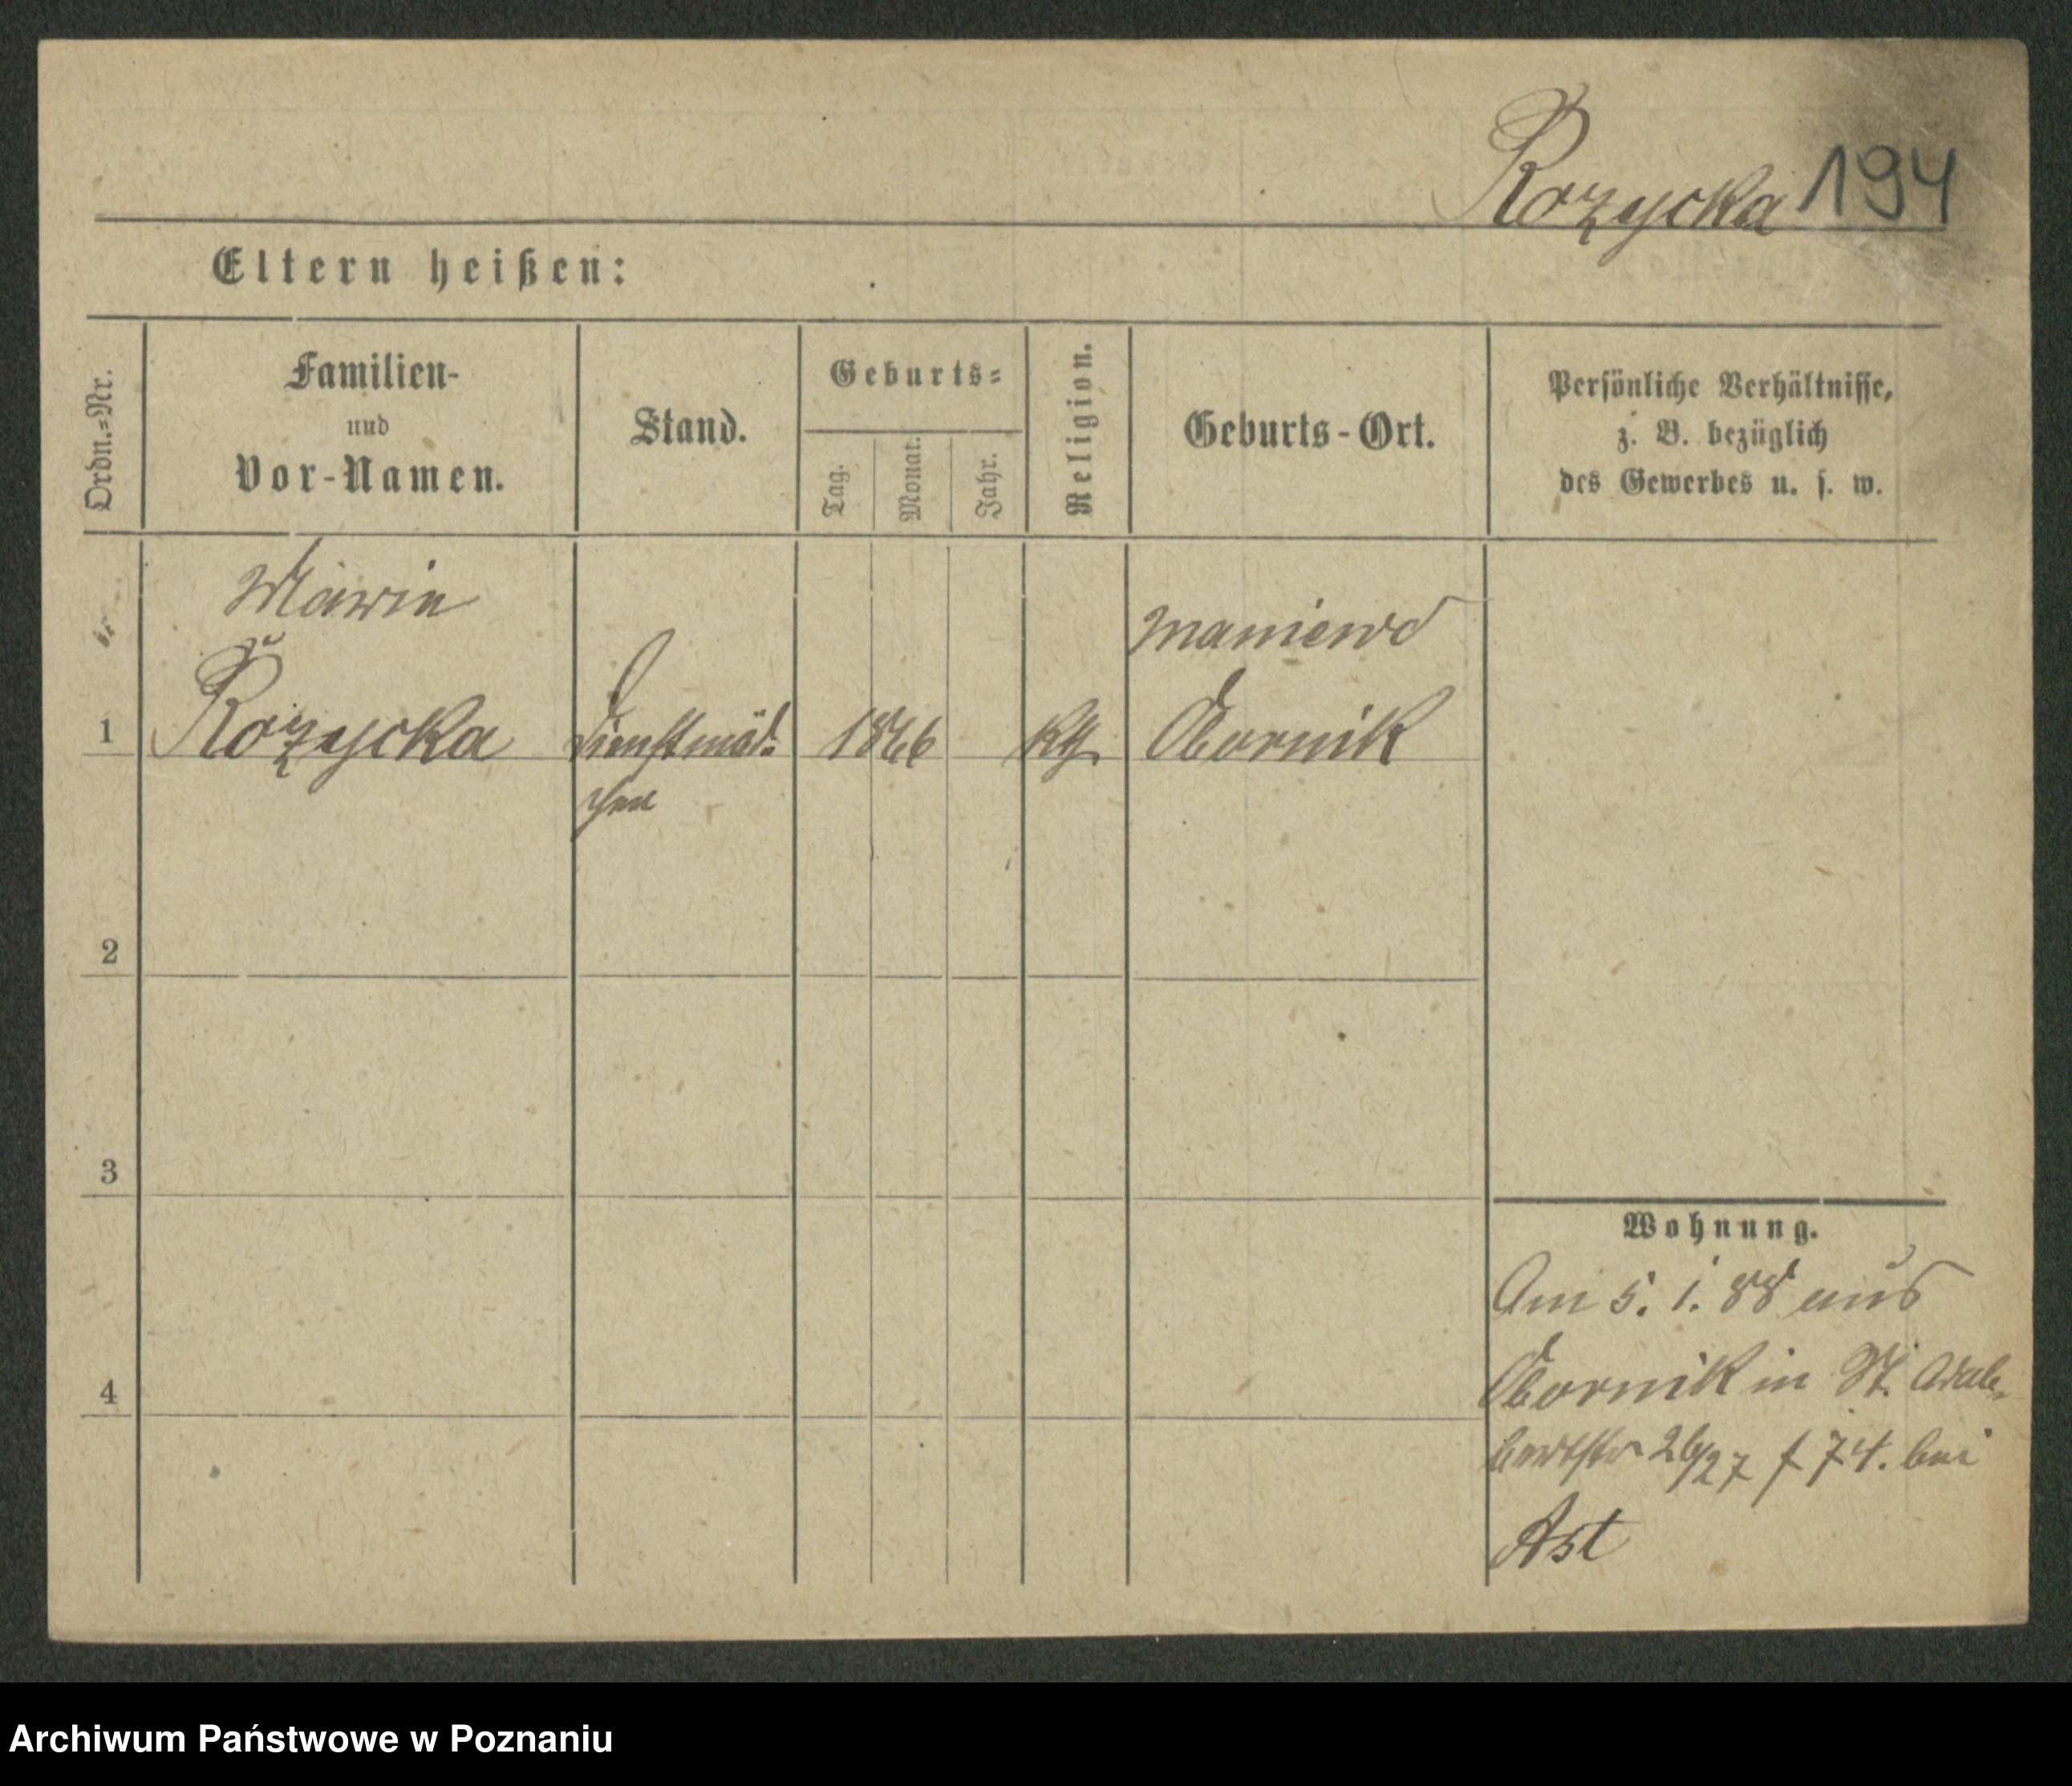 Rozycka 194
Eltern heißen:
Ordn.=Nr.
Familien-
und
Vor-Namen.
Stand.
Geburts=
Tag.
Monat.
Jahr.
Religion.
Geburts-Ort.
Persönliche Verhältnisse,
z. B. bezüglich
des Gewerbes u. s. w.
Maria
maniewo
1 Rozycka Dienstmäd- 1866 kth Obornik
chen
2
3
Wohnung.
Am 5. 1. 88 aus
Obornik in St. Adal-
4
bertstr 26/27 f 74. bei
Ast
Archiwum Państwowe w Poznaniu